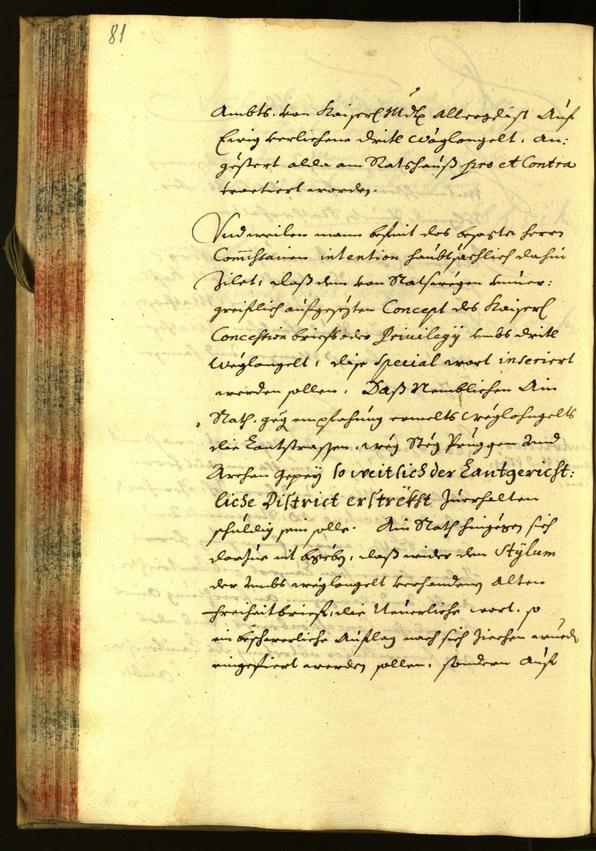 81
Ambts. von Kaiserl. Mdt. allergdist auf
Ewig verlichene dritte Wäglongelt, an:
gestert alda am Rathshauß pro et Contra
tractiert worden.
Und weilen man befint des herrn
Commissarien intention haubtsächlich dahin
Zilet, daß dem von Rathswegen
aufgesezten Concept des Kaiserl
Concession brieffs oder Privilegÿ umbs dritte
Wäglongelt, dise special wort inseriert
werden sollen, Daß Nemblichen Ain
Rath, gegen empfahung ermelts Weglohngelts
die Lantstrassen, weeg Steg Pruggen und
Archen so weit sich der Lantgericht:
liche District erströkht Zuerhalten
schuldig sein solle. Ain Rath hingegen sich
darfür daß wider den Stÿlum
der umbs weglongelt verhandenen Alten
freiheit brief, die Neuerliche wort, so
ein beschwerliche Auflag nach sich Ziechen wurde
eingefiert werden sollen, sondern auf